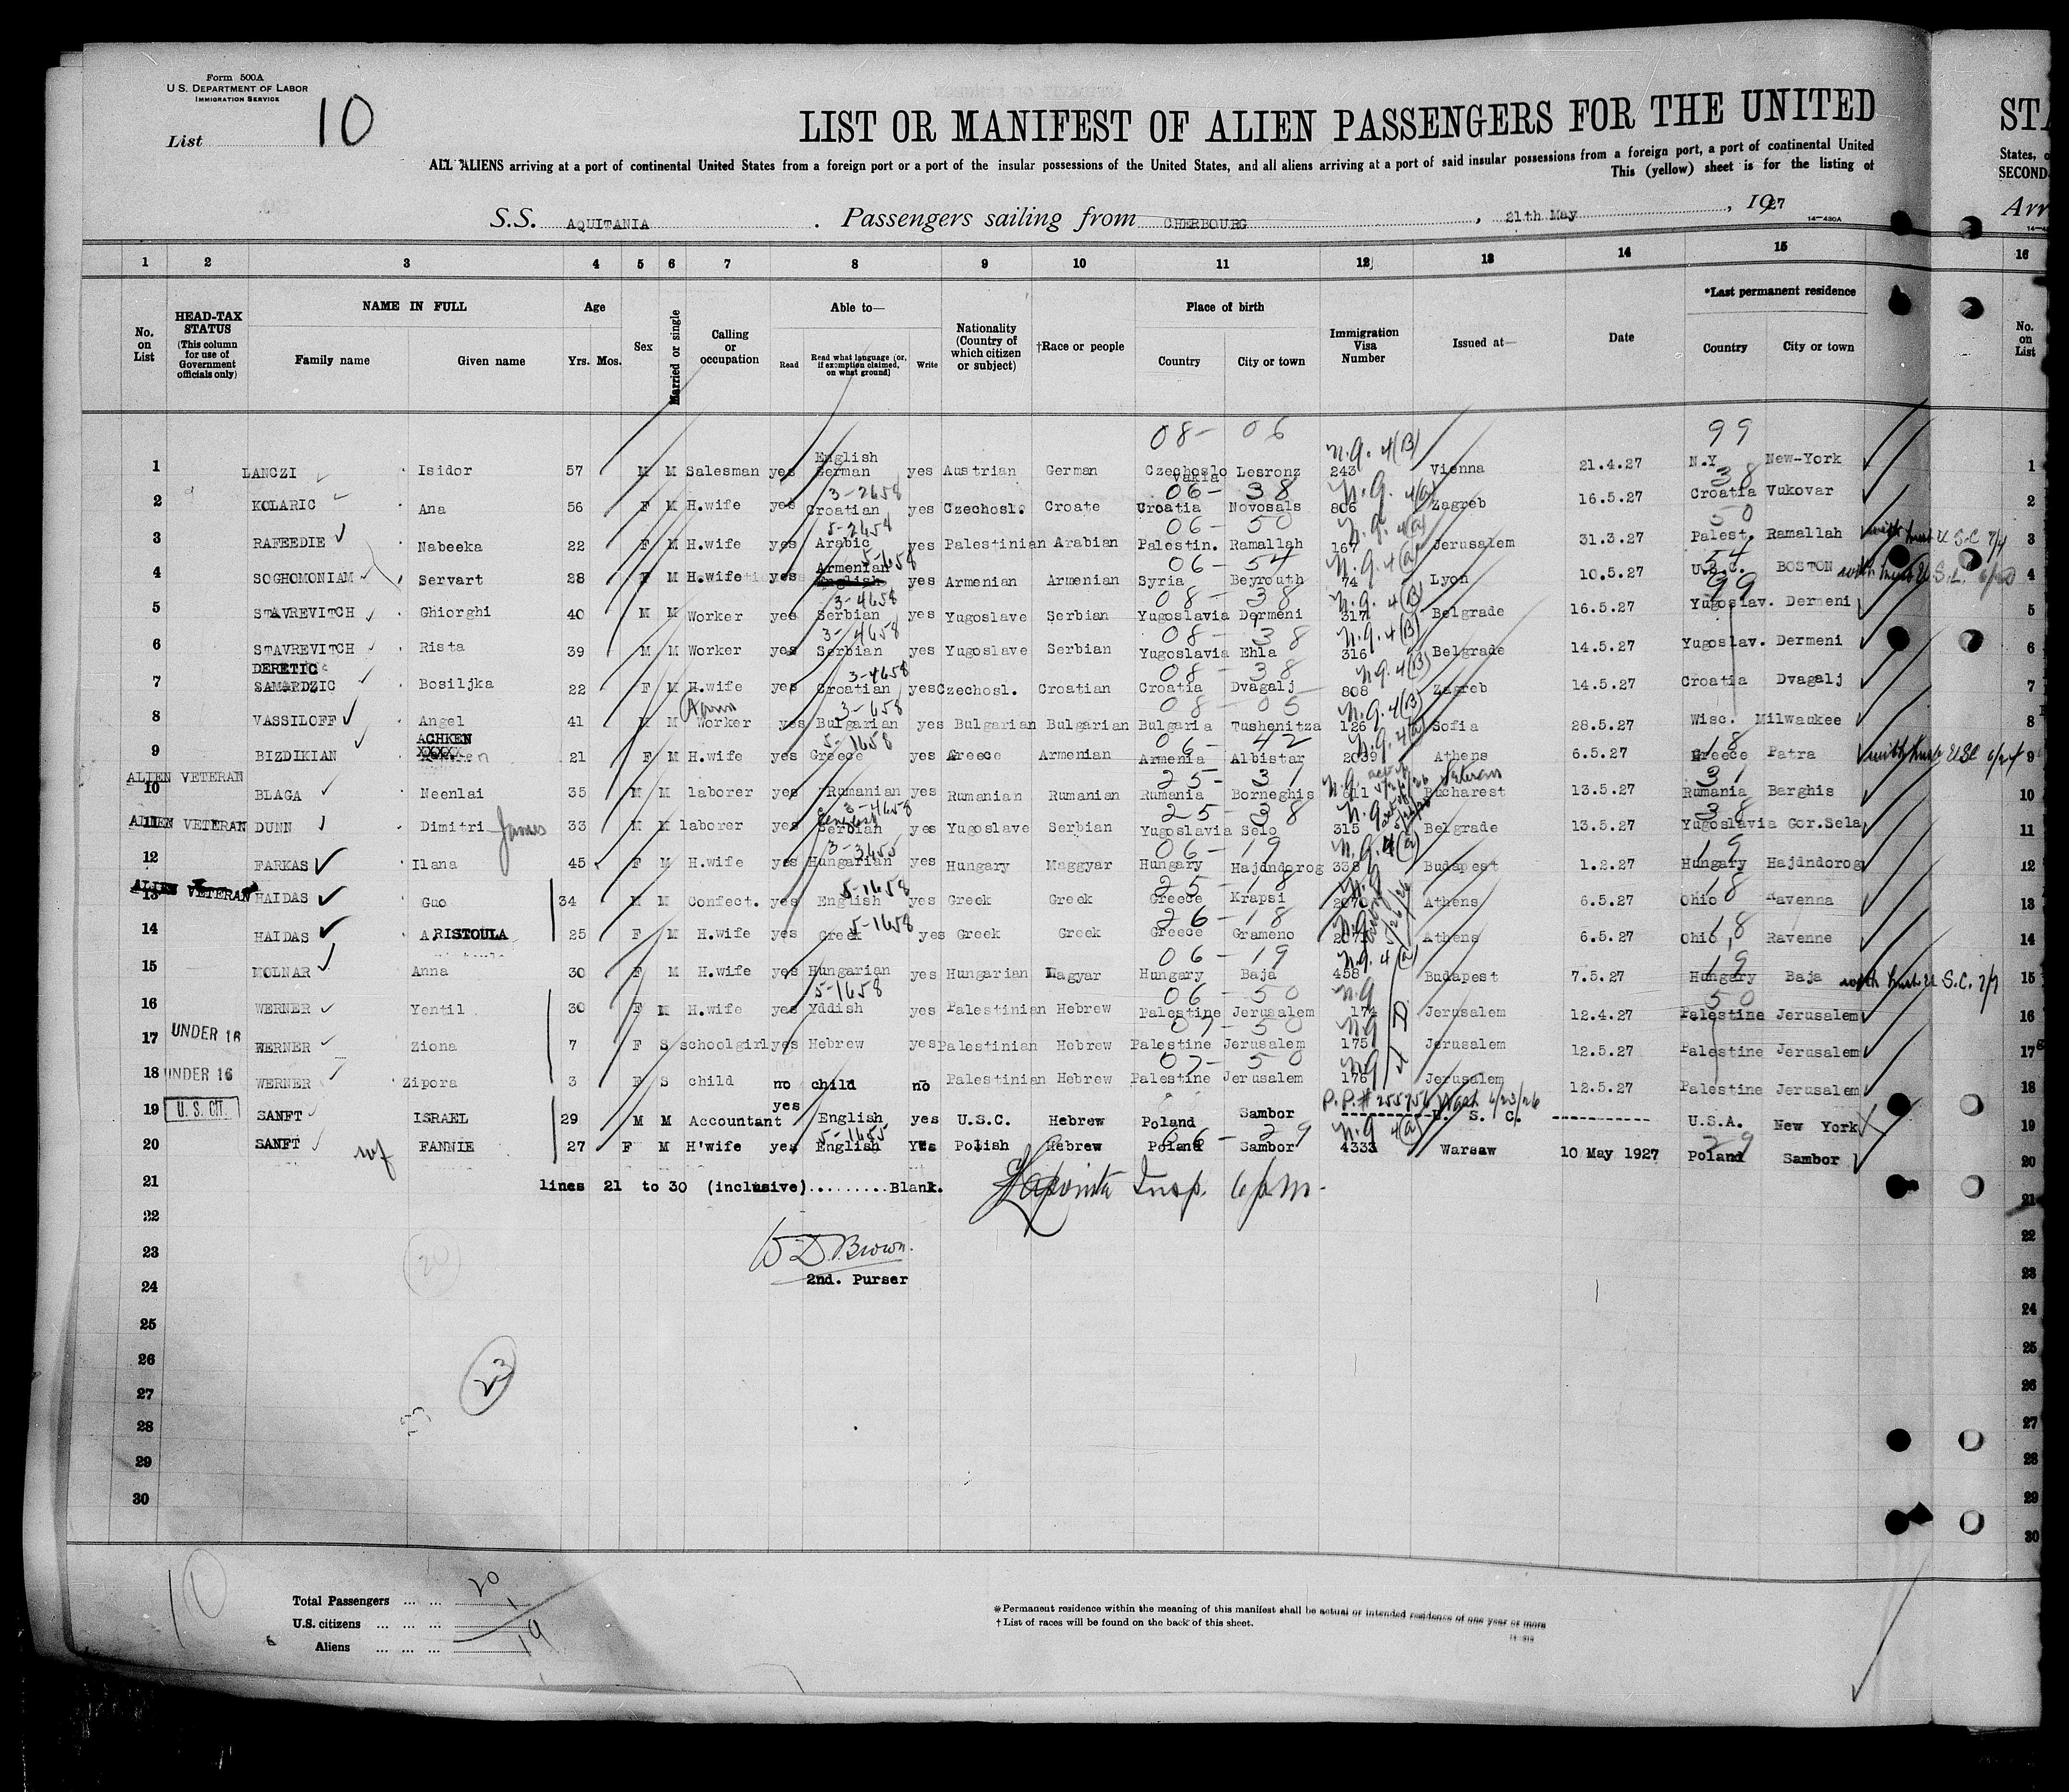 Form 500A
U. S. DEPARTMENT OF LABOR
IMMIGRATION SERVICE
List 10
LIST OR MANIFEST OF ALIEN PASSENGERS FOR THE UNITED
ALL ALIENS arriving at a port of continental United States from a foreign port or a port of the insular possessions of the United States, and all aliens arriving at a port of said insular possessions from a foreign port, a port of continental United
This (yellow) sheet is for the listing of
S.S. AQUITANIA . Passengers sailing from CHERBOURG , 21th May , 1927
14—430A
1 2 3 4 5 6 7 8 9 10 11 12 13 14 15
No. on List
HEAD-TAX STATUS (This column for use of Government officials only)
NAME IN FULL
Family name Given name
Age
Yrs. Mos.
Sex
Married or single
Calling or occupation
Able to—
Read Read what language [or, if exemption claimed, on what ground] Write
Nationality (Country of which citizen or subject)
†Race or people
Place of birth
Country City or town
Immigration Visa Number
Issued at—
Date
*Last permanent residence
Country City or town
08- 06 n.q. 4(B) 99
1 LANCZI Isidor 57 M M Salesman yes English German yes Austrian German Czechoslo vakia Lesronz 243 Vienna 21.4.27 N.Y. New-York
3-2658 06- 38 n.q. 4(a) 38
2 KOLARIC Ana 56 F M H.wife yes Croatian yes Czechosl. Croate Croatia Novosals 806 Zagreb 16.5.27 Croatia Vukovar
5-2654 06- 50 n.q. 4(a) 50
3 RAFEEDIE Nabeeka 22 F M H.wife yes Arabic yes Palestinian Arabian Palestin. Ramallah 167 Jerusalem 31.3.27 Palest. Ramallah
5-1658 06- 54 n.q. 4(a) 54
4 SOGHOMONIAM Servart 28 F M H.wife yes Armenian English yes Armenian Armenian Syria Beyrouth 74 Lyon 10.5.27 BOSTON
3-4658 08- 38 n.q. 4(B) 99
5 STAVREVITCH Ghiorghi 40 M M Worker yes Serbian yes Yugoslave Serbian Yugoslavia Dermeni 317 Belgrade 16.5.27 Yugoslav. Dermeni
3-4658 08- 38 n.q. 4(B)
6 STAVREVITCH Rista 39 M M Worker yes Serbian yes Yugoslave Serbian Yugoslavia Ehla 316 Belgrade 14.5.27 Yugoslav. Dermeni
DERETIC 3-4658 08- 38 n.q. 4(B)
7 SAMARDZIC Bosiljka 22 F M H.wife yes Croatian yes Czechosl. Croatian Croatia Dvagalj 808 Zagreb 14.5.27 Croatia Dvagalj
Farm 3-658 08- 05 n.q. 4(B)
8 VASSILOFF Angel 41 M M Worker yes Bulgarian yes Bulgarian Bulgarian Bulgaria Tushenitza 126 Sofia 28.5.27 Wisc. Milwaukee
ACHKEN 5-1658 06- 42 n.q. 4(a) 18
9 BIZDIKIAN XXXXX 21 F M H.wife yes Greece yes Greece Armenian Armenia Albistar 2039 Athens 6.5.27 Greece Patra
ALIEN VETERAN 25- 31 n.q. Veteran 31
10 BLAGA Neenlai 35 M M laborer yes Rumanian yes Rumanian Rumanian Rumania Borneghis 811 Bucharest 13.5.27 Rumania Barghis
3-4658 25- 38 n.q. 38
ALIEN VETERAN 11 DUNN Dimitri James 33 M M laborer yes English Serbian yes Yugoslave Serbian Yugoslavia Selo 315 Belgrade 13.5.27 Yugoslavia Gor.Sela
3-3655 06- 19 n.q. 4(a) 19
12 FARKAS Ilana 45 F M H.wife yes Hungarian yes Hungary Maggyar Hungary Hajdndorog 338 Budapest 1.2.27 Hungary Hajdndorog
5-1658 25- 18 n.q. 18
ALIEN VETERAN 13 HAIDAS Guo 34 M M Confect. yes English yes Greek Greek Greece Krapsi Athens 6.5.27 Ohio Ravenna
5-1658 26- 18 n.q. 18
14 HAIDAS ARISTOULA 25 F M H.wife yes Greek yes Greek Greek Greece Grameno Athens 6.5.27 Ohio, Ravenne
06- 19 n.q. 4(a) 19
15 MOLNAR Anna 30 F M H.wife yes Hungarian yes Hungarian Magyar Hungary Baja 458 Budapest 7.5.27 Hungary Baja
5-1658 06- 50 n.q 50
16 WERNER Yentil 30 F M H.wife yes Yddish yes Palestinian Hebrew Palestine Jerusalem 174 Jerusalem 12.4.27 Palestine Jerusalem
UNDER 16 07- 50 n.q
17 WERNER Ziona 7 F S schoolgirl yes Hebrew yes Palestinian Hebrew Palestine Jerusalem 175 Jerusalem 12.5.27 Palestine Jerusalem
07- 50 n.q
18 UNDER 16 WERNER Zipora 3 F S child no child no Palestinian Hebrew Palestine Jerusalem 176 Jerusalem 12.5.27 Palestine Jerusalem
P.P.# 255756 Wash 6/23/26
19 U. S. CIT. SANFT ISRAEL 29 M M Accountant yes English yes U.S.C. Hebrew Poland Sambor U. S. C. U.S.A. New York
5-1655 06- 29 n.q 4(a) 29
20 SANFT wf FANNIE 27 F M H'wife yes English Yes Polish Hebrew Poland Sambor 4333 Warsaw 10 May 1927 Poland Sambor
21 lines 21 to 30 (inclusive).........Blank. Lapointe Insp. 6 p.m.
22
23 20 W D. Brown.
24 2nd. Purser
25
26
27 23
28 23
29
30
10
Total Passengers ... ... 20
U.S. citizens ... ... ... 1
Aliens ... ... ... 19
*Permanent residence within the meaning of this manifest shall be actual or intended residence of one year or more
† List of races will be found on the back of this sheet.
STA
States, o
SECOND-
Arr
16
No. on List
1
2
3
4
5
6
7
8
9
10
11
12
13
14
15
16
17
18
19
20
21
22
23
24
25
26
27
28
29
30